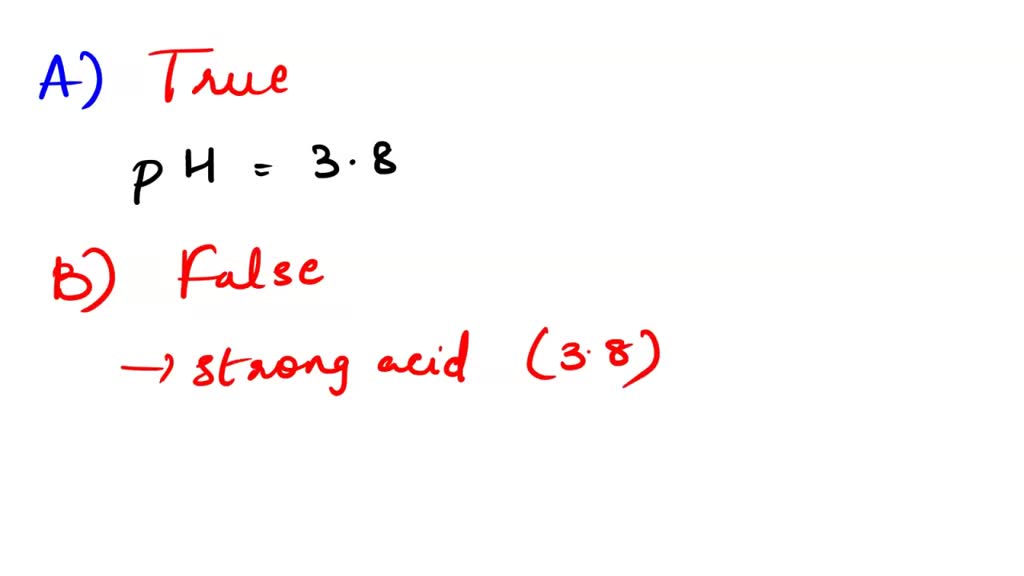 A) True
pH = 3.8
B) False
→ strong acid (3.8)